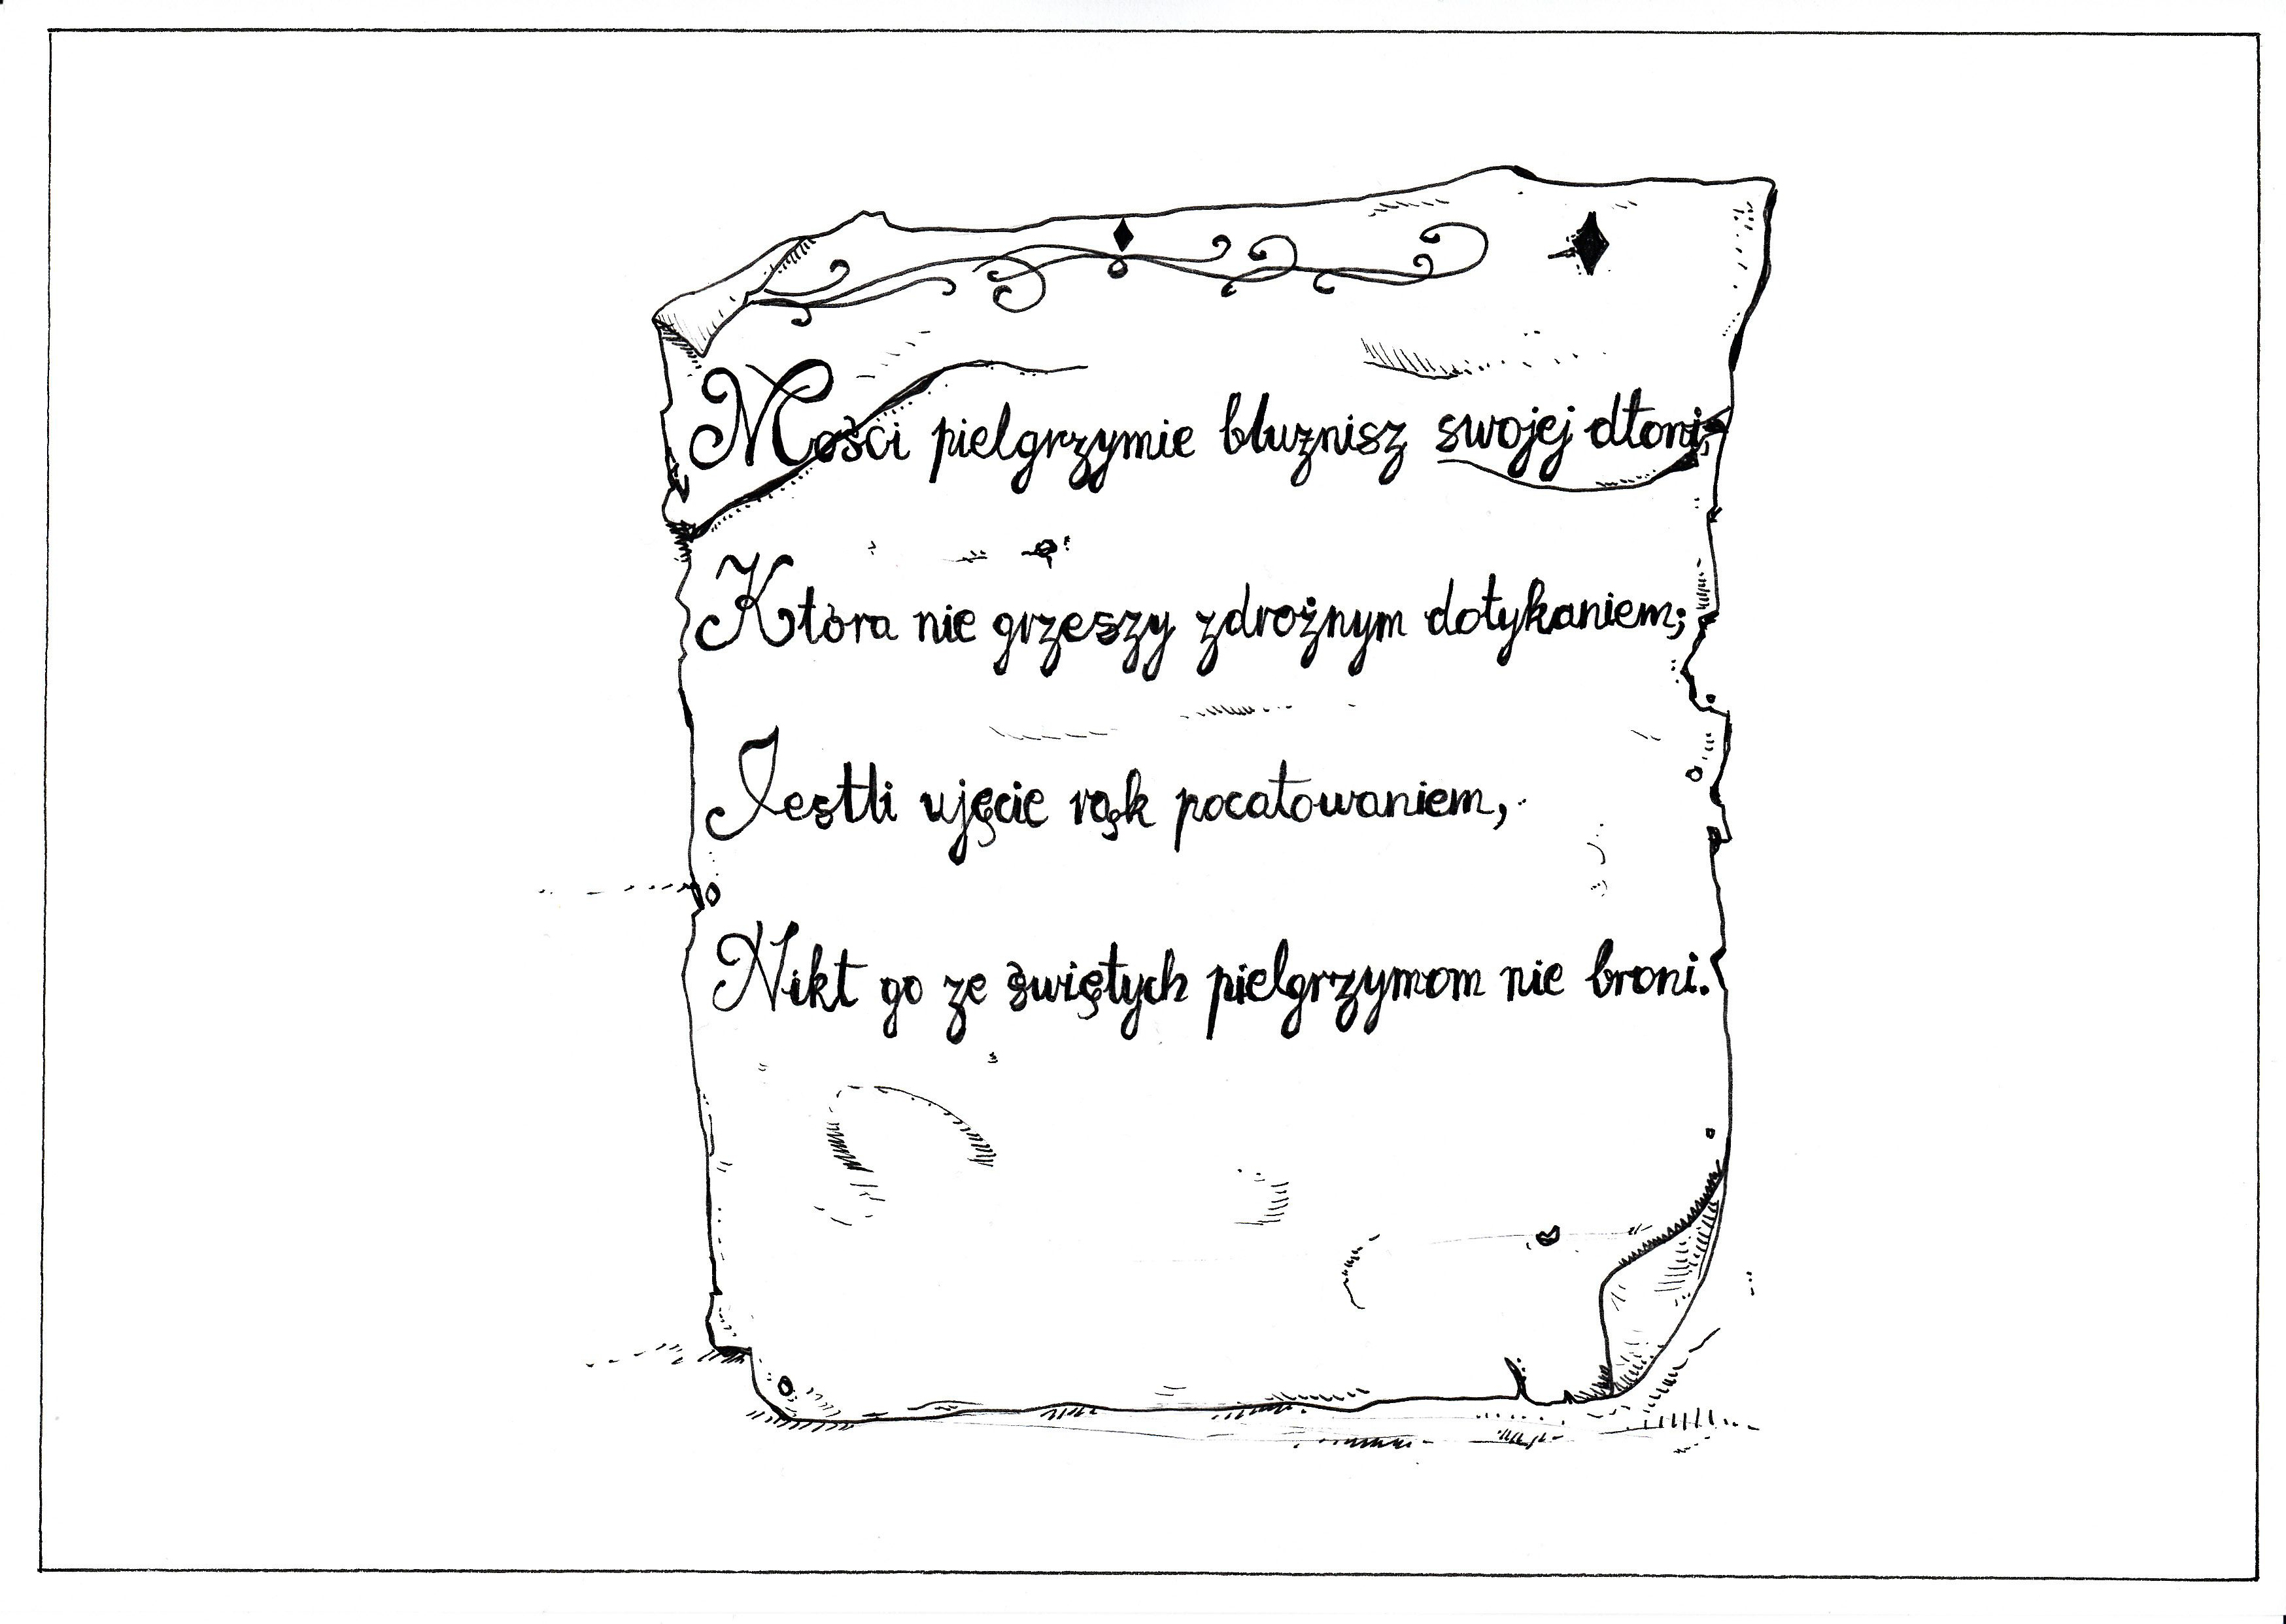 Mości pielgrzymie bluznisz swojej dłoni,
Która nie grzeszy zdrożnym dotykaniem;
Jestli ujęcie rąk pocałowaniem,
Nikt go ze świętych pielgrzymom nie broni.